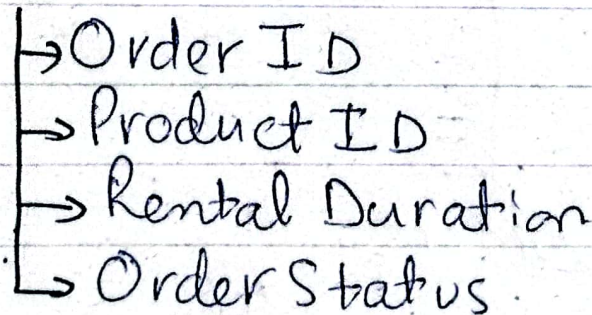 Order ID
Product ID
Rental Duration
Order Status.